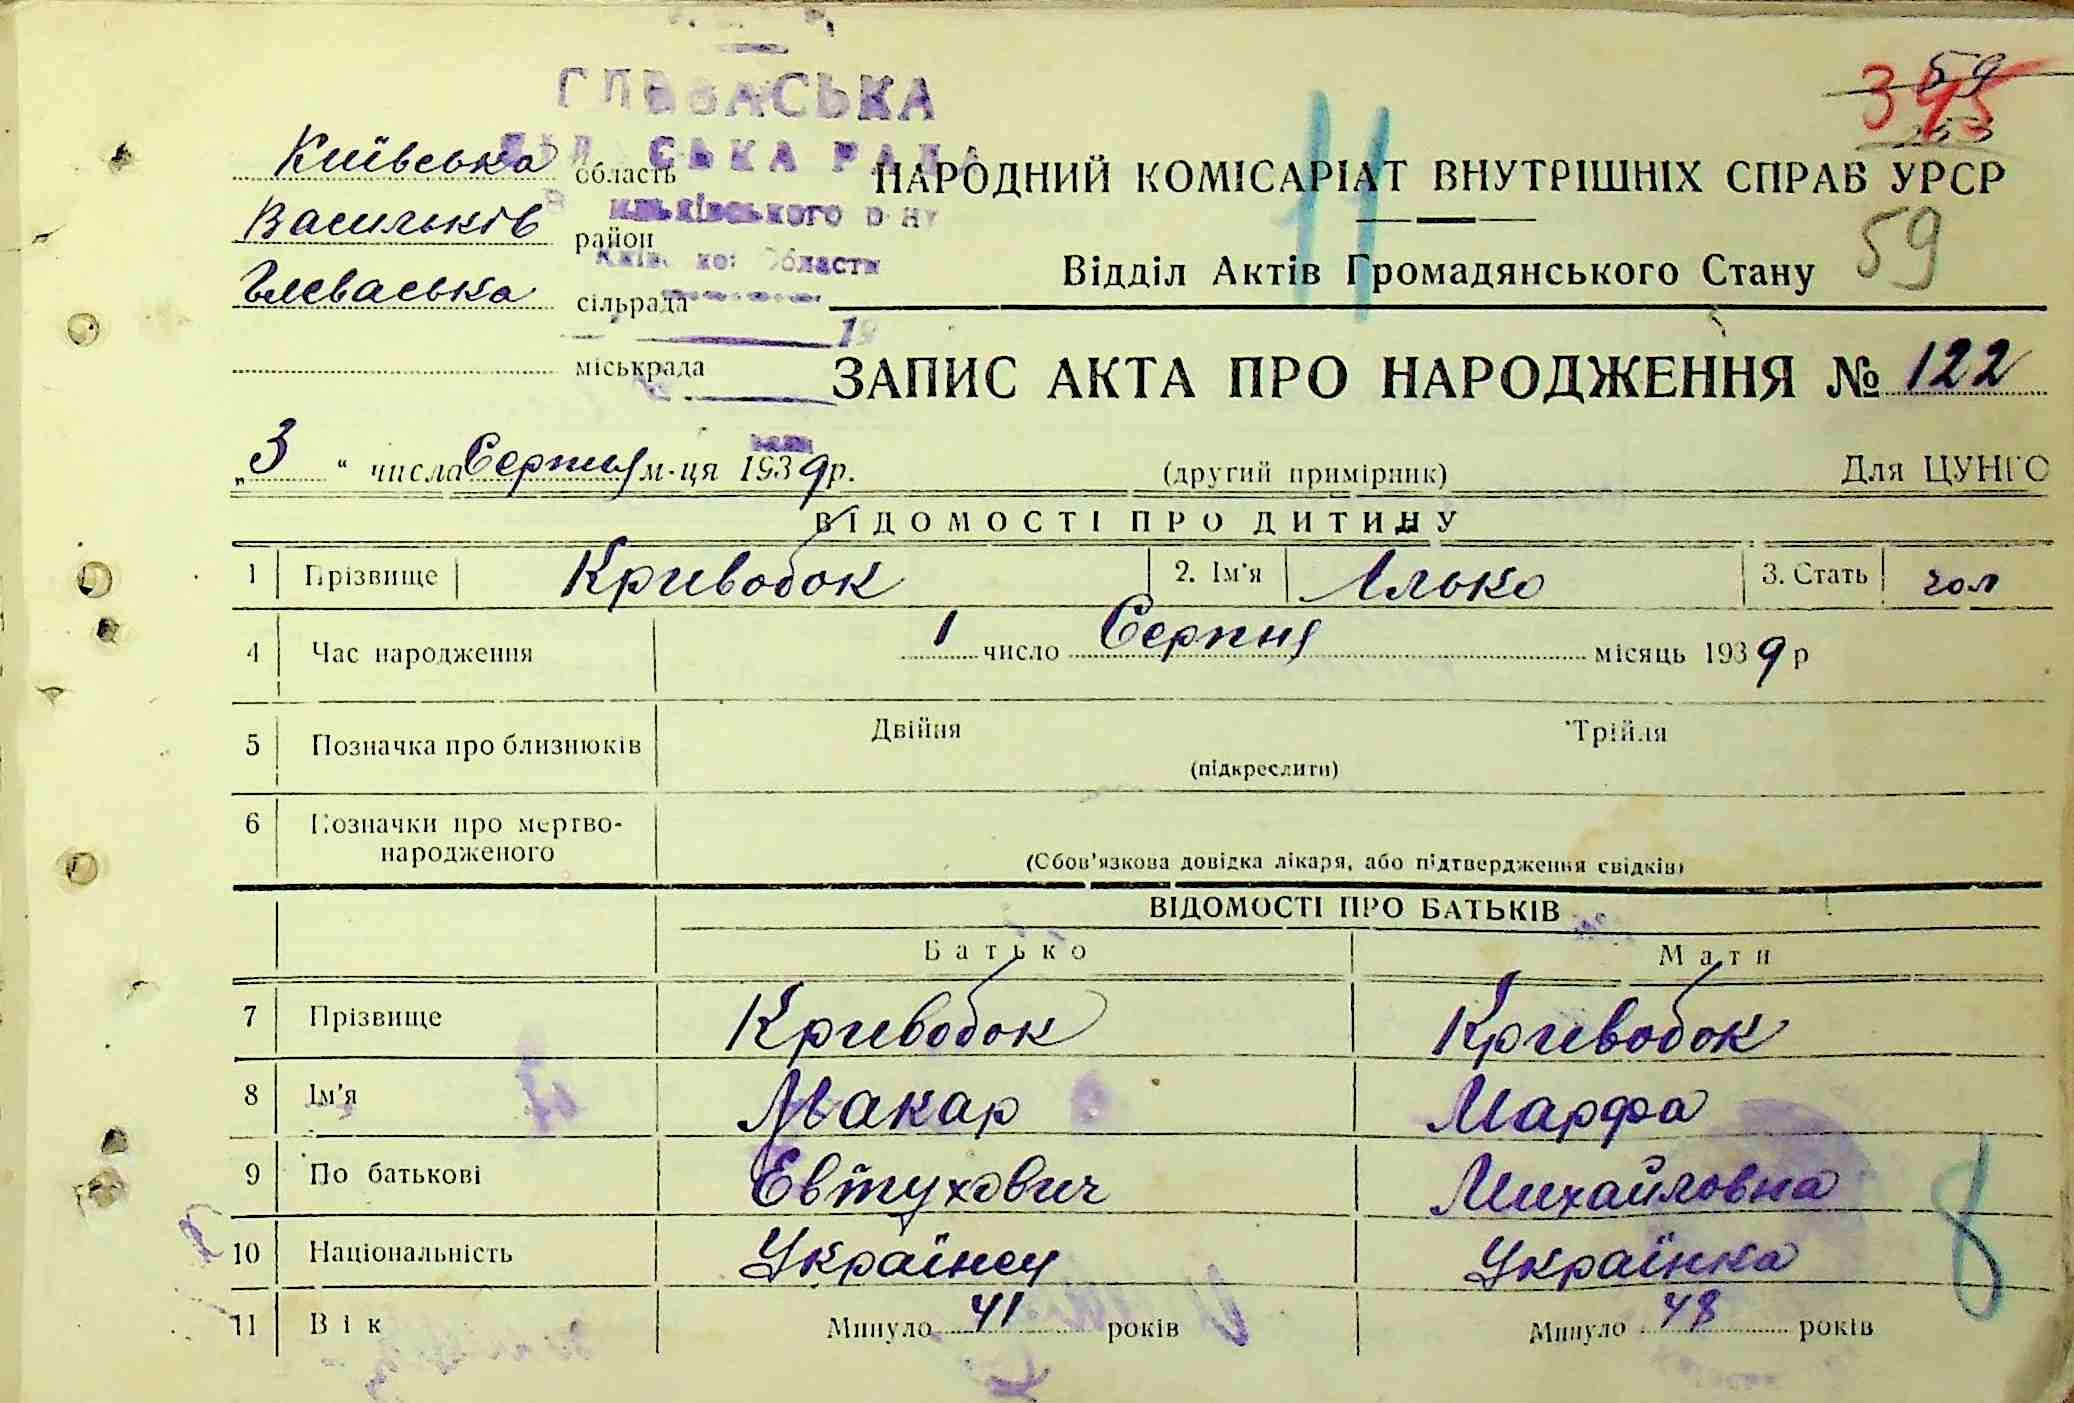 ГЛЕВАСЬКА
СІЛЬСЬКА РАДА
Васильківського р-ну
Київської Області
59
395
253
11
Київська область
НАРОДНИЙ КОМІСАРІАТ ВНУТРІШНІХ СПРАВ УРСР
Васильків район
59
Відділ Актів Громадянського Стану
Глеваська сільрада
19
міськрада
ЗАПИС АКТА ПРО НАРОДЖЕННЯ № 122
„3“ числа Серпня м-ця 1939р. (другий примірник) Для ЦУНГО
ВІДОМОСТІ ПРО ДИТИНУ
1 Прізвище Кривобок 2. Ім'я Алько 3. Стать чол
4 Час народження 1 число Серпня місяць 1939р
5 Позначка про близнюків Двійня Трійля
(підкреслити)
6 Позначки про мертво-
народженого
(Обов'язкова довідка лікаря, або підтвердження свідків)
ВІДОМОСТІ ПРО БАТЬКІВ
Батько Мати
7 Прізвище Кривобок Кривобок
8 Ім'я Макар Марфа
9 По батькові Евтухович Михайловна
10 Національність Українец Українка
8
11 Вік Минуло 41 років Минуло 48 років